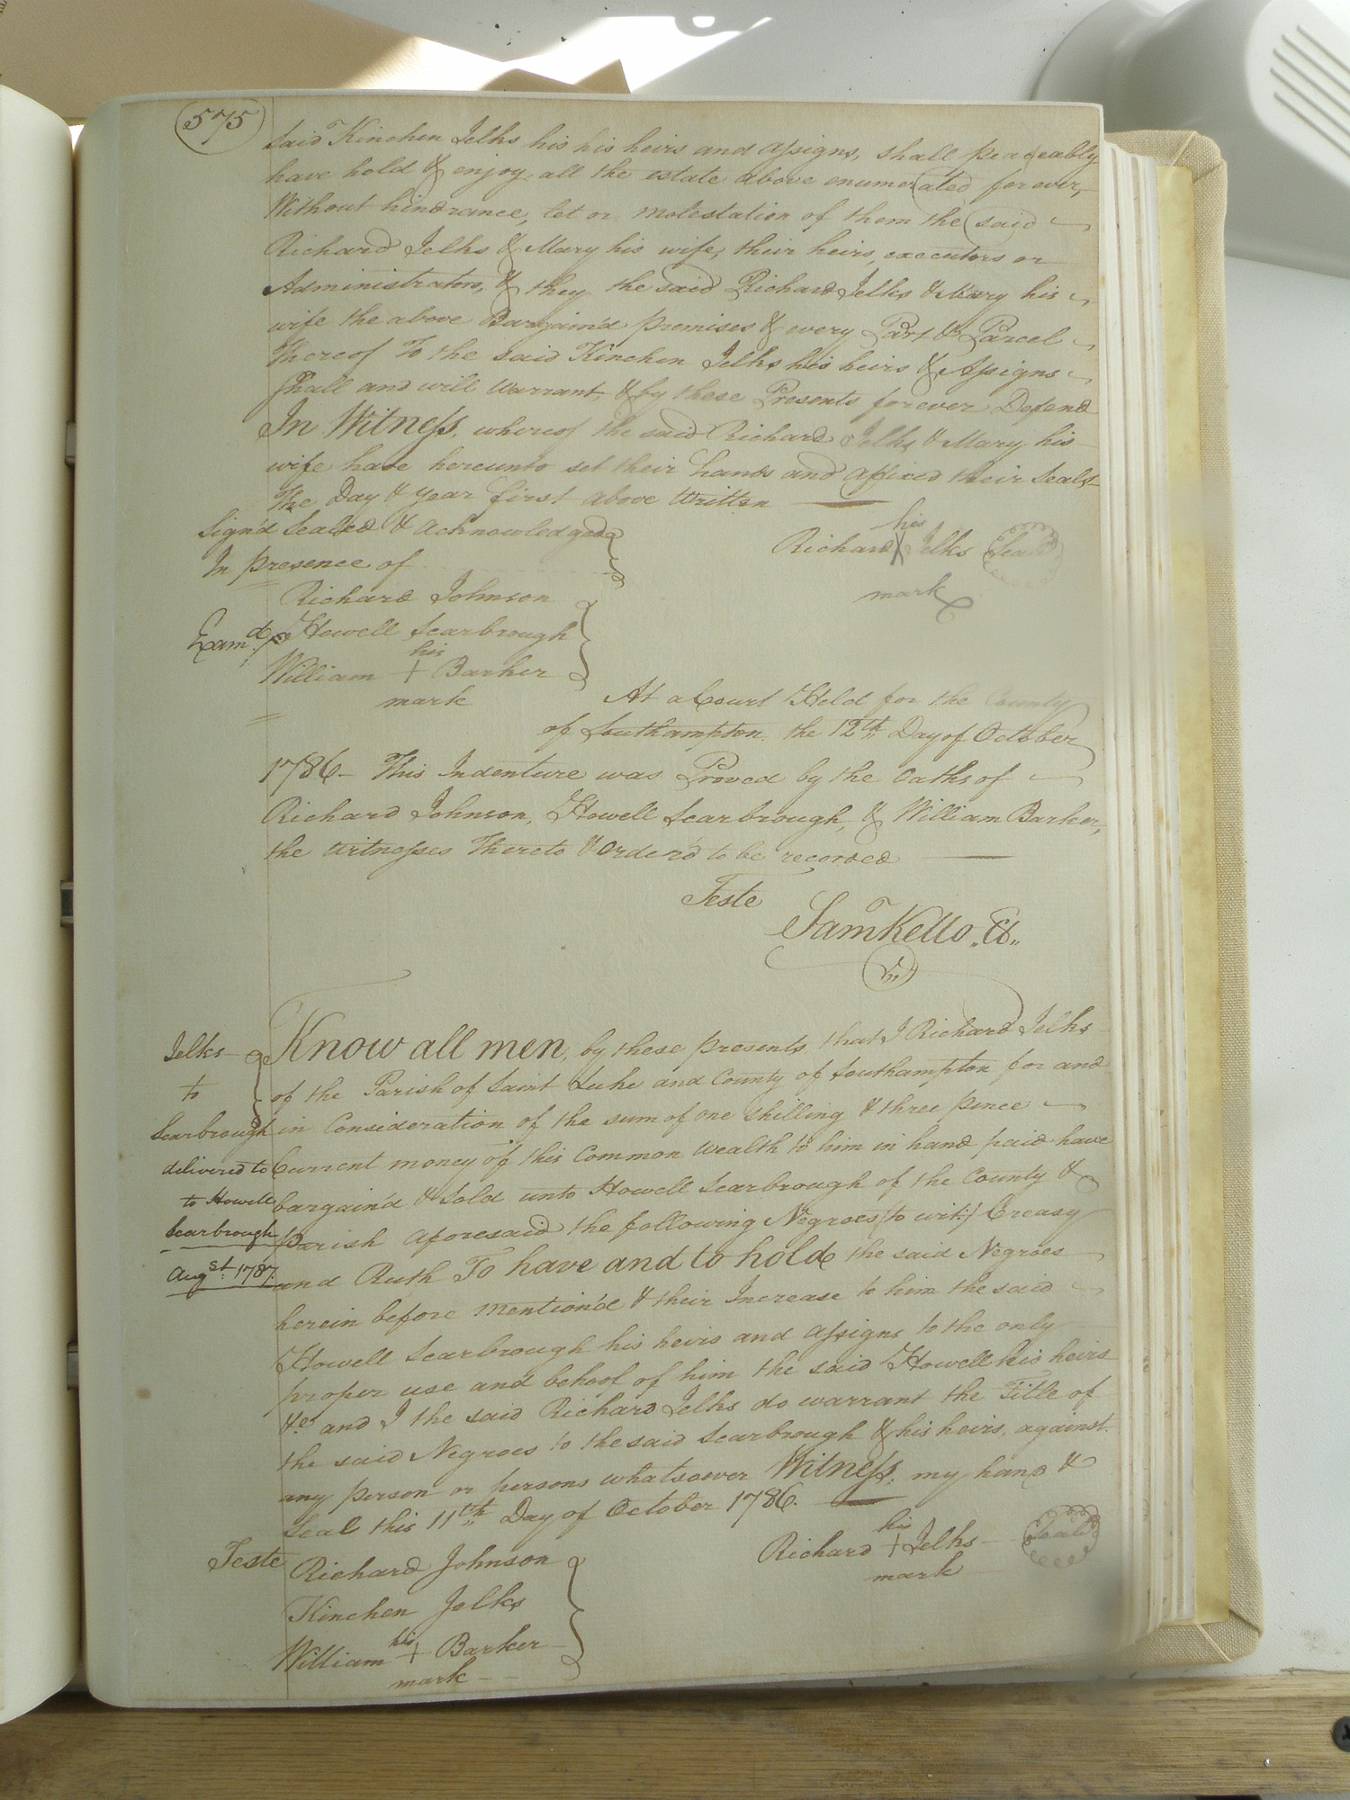 575
said Kinchen Jelks his his heirs and assigns, shall peaceably
have hold & enjoy all the estate above enumerated forever,
Without hindrance, let or molestation of them the said
Richard Jelks & Mary his wife, their heirs, executors or
Administrators, & they the said Richard Jelks & Mary his
wife the above Bargain'd premises & every Part & Parcel
thereof To the said Kinchen Jelks his heirs & Assigns
shall and will Warrant, & by these Presents forever Defend
In Witness, whereof the said Richard Jelks & Mary his
wife have hereunto set their hands and affixed their Seals
the Day & year first above Written
Sign'd Sealed & Acknowledged
In presence of
his
Richard X Jelks Seal
mark
Richard Johnson
Exam.d Howell Scarbrough
his
William + Barker
mark
At a Court Held for the County
of Southampton the 12th Day of October
1786 - This Indenture was Proved by the Oaths of
Richard Johnson, Howell Scarbrough, & William Barker,
the witnesses thereto & Orderd to be recorded
Teste
Saml Kello Cl
Jelks
to
Scarbrough
delivered to
to Howell
Scarbrough
Augst. 1787.
Know all men, by these presents that I Richard Jelks
of the Parish of Saint Luke and County of Southampton for and
in Consideration of the sum of one shilling & three pence
Current money of this Common Wealth to him in hand paid have
bargain'd & Sold unto Howell Scarbrough of the County &
Parish aforesaid the following Negroes (to wit:) Creasy
and Ruth To have and to hold the said Negroes
herein before mention'd & their Increase to him the said
Howell Scarbrough his heirs and assigns to the only
proper use and behoof of him the said Howell his heirs
&c and I the said Richard Jelks do warrant the Title of
the said Negroes to the said Scarbrough & his heirs, against
any person or persons whatsoever Witness, my hand &
Seal this 11th Day of October 1786.
his
Richard + Jelks Seal
mark
Teste Richard Johnson
Kinchen Jelks
his
William + Barker
mark